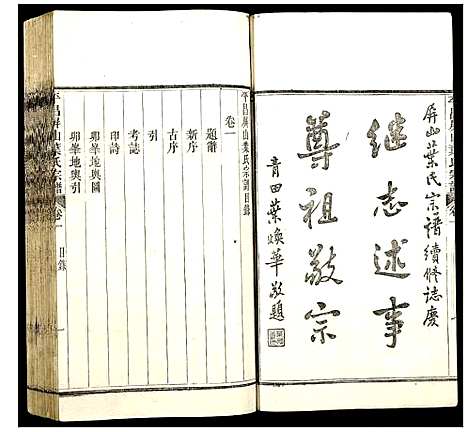 平昌屏山葉氏宗譜 卷一
屏山葉氏宗譜續修誌慶
继志述事
尊祖敬宗
青田葉煥華敬題
平昌屏山葉氏宗譜目錄
卷一
題辭
新序
古序
引
考誌
印詩
卯峯地輿圖
卯峯地輿引
平昌屏山葉氏宗譜 卷一 目錄 一